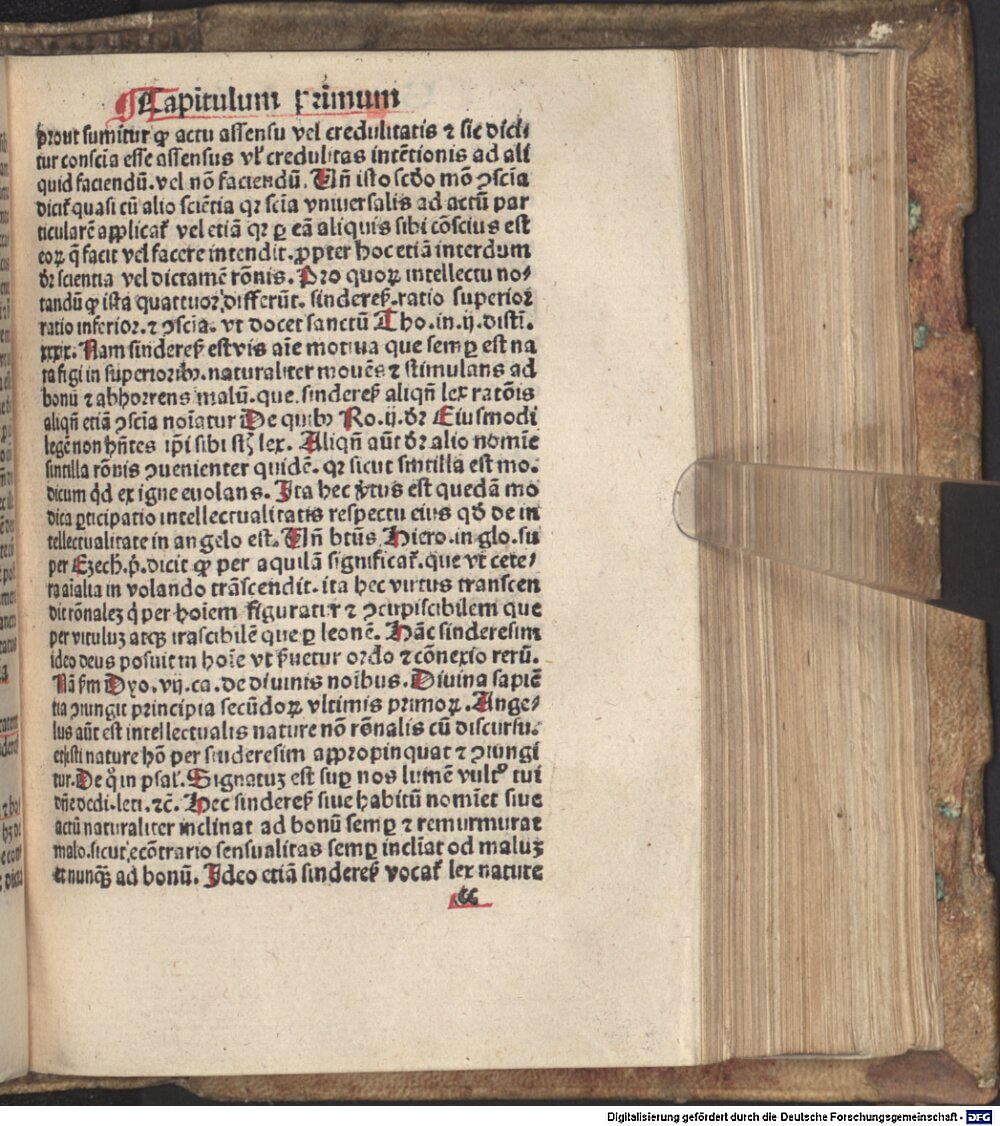 Capitulum Primum
prout sumitur ꝙ actu assensu vel credulitatis ⁊ sic dici-
tur conscīa esse assensus vl̓ credulitas intētionis ad ali
quid faciendū. vel nō faciendū. Un̄ isto scd̓o mō ꝯscīa
dicit̓ quasi cū alio sciētia qꝛ scīa vniuersalis ad actū par
ticularē applicat̓ vel etiā qꝛ ꝑ eā aliquis sibi cōscius est
eoꝝ q̄ facit vel facere intendit. ꝓpter hoc etiā interdum
dr̄ scientia vel dictamē rōnis. Pro quoꝝ intellectu no-
tandū ꝙ ista quattuor differūt. sindereß. ratio superior
ratio inferior. ⁊ ꝯscīa. vt docet sanctū Tho. in. ij. distī.
xxxix. Nam sindereß est vis aīe motiua que semꝑ est na
ta figi in superioribꝰ. naturaliter mouēs ⁊ stimulans ad
bonū ⁊ abhorrens malū. que. sindereß aliqn̄ lex ratōis
aliqn̄ etiā ꝯscīa noīatur De quibꝰ Ro. ij. dr̄ Eiusmodi
legē non hn̄tes ip̄i sibi sūt lex. Aliqn̄ aūt dr̄ alio nomīe
sintilla rōnis ꝯuenienter quidē. qꝛ sicut sintilla est mo-
dicum qd̓ ex igne euolans. Ita hec v̓tus est quedā mo
dica ꝑticipatio intellectualitatis respectu eius qd̓ de in
tellectualitate in angelo est. Un̄ btūs Hiero. in glo. su
per Ezech. p̄. dicit ꝙ per aquilā significat̓. que vt cete-
ra aīalia in volando trāscendit. ita hec virtus transcen
dit rōnalez q̄ per hoīem figuratur ⁊ ꝯcupiscibilem que
per vituluz atqꝫ irascibilē que ꝑ leonē. Hāc sinderesim
ideo deus posuit in hoīe vt ẜuetur ordo ⁊ cōnexio rerū.
Nā ẜm Dyo. vij. ca. de diuinis noībus. Diuina sapiē
tia ꝯiungit principia secūdoꝝ vltimis primoꝝ. Ange-
lus aūt est intellectualis nature nō rōnalis cū discursu.
et isti nature hō per sinderesim appropinquat ⁊ ꝯiungi
tur. De q̊ in psal̓. Signatuz est suꝑ nos lumē vultꝰ tui
dn̄e dedi. leti. ⁊c̄. Hec sindereß siue habitū nomīet siue
actū naturaliter inclinat ad bonū semꝑ ⁊ remurmurat
malo. sicut ecōtrario sensualitas semꝑ inclīat ad maluz
et nunqꝫ ad bonū. Ideo etiā sindereß vocat̓ lex nature
Digitalisierung gefördert durch die Deutsche Forschungsgemeinschaft - DFG